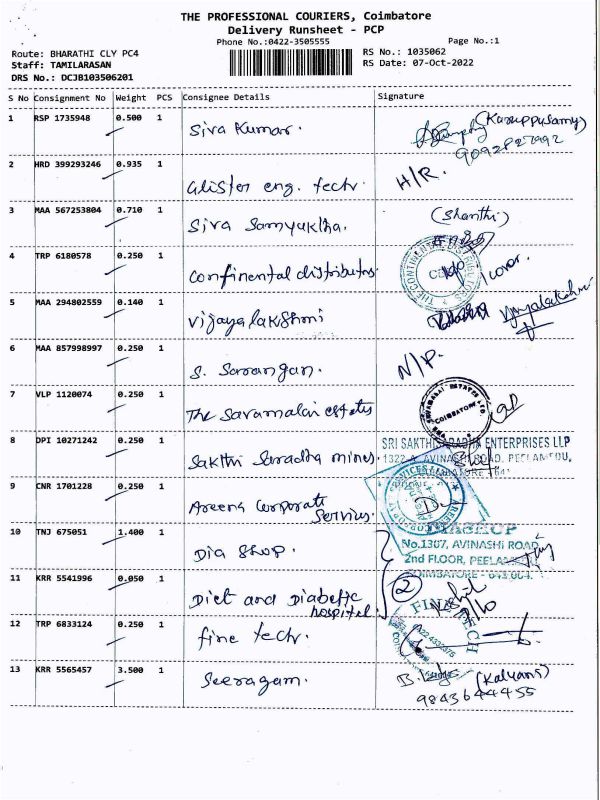 THE PROFESSIONAL COURIERS, Coimbatore
Delivery Runsheet - PCP
Phone No.:0422-3505555
Page No.:1
Route: BHARATHI CLY PC4
RS No.: 1035062
Staff: TAMILARASAN
RS Date: 07-Oct-2022
DRS No.: DCJB103506201
S No Consignment No Weight PCS Consignee Details Signature
1 RSP 1735948 0.500 1 Siva Kumar. (Karuppusamy)
9092827992
2 HRD 399293246 0.935 1 Glister eng. tech. H/R.
3 MAA 567253804 0.710 1 Siva Samyuktha. (Shanthi)
4 TRP 6180578 0.250 1 Continental distributors 1 cover.
THE CONTINENTAL DISTRIBUTORS
5 MAA 294802559 0.140 1 Vijayalakshmi Vijayalakshmi
6 MAA 857998997 0.250 1 S. Sarangan. N/P.
7 VLP 1120074 0.250 1 The Savamalai estates
COIMBATORE
8 DPI 10271242 0.250 1 Sakthi Saradha mines.
SRI SAKTHI SARADHA ENTERPRISES LLP
1322 A, AVINASHI ROAD, PEELAMEDU,
9 CNR 1701228 0.250 1 Areena Corporate
Services.
10 TNJ 675051 1.400 1 Dia Shop.
DIASHOP
No.1367, AVINASHI ROAD
2nd FLOOR, PEELAMEDU
COIMBATORE - 641 004.
11 KRR 5541996 0.050 1 Diet and Diabetic
hospital. 2
12 TRP 6833124 0.250 1 fine tech.
FINE TECH
13 KRR 5565457 3.500 1 Seeragam. (Kalyani)
9843644455